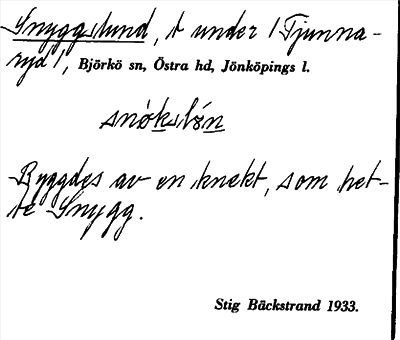 Snyggslund, t under 1 Tjunna-
ryd 1, Björkö sn, Östra hd, Jönköpings l.
snókslón
Byggdes av en knekt, som het-
te Snygg.
Stig Bäckstrand 1933.